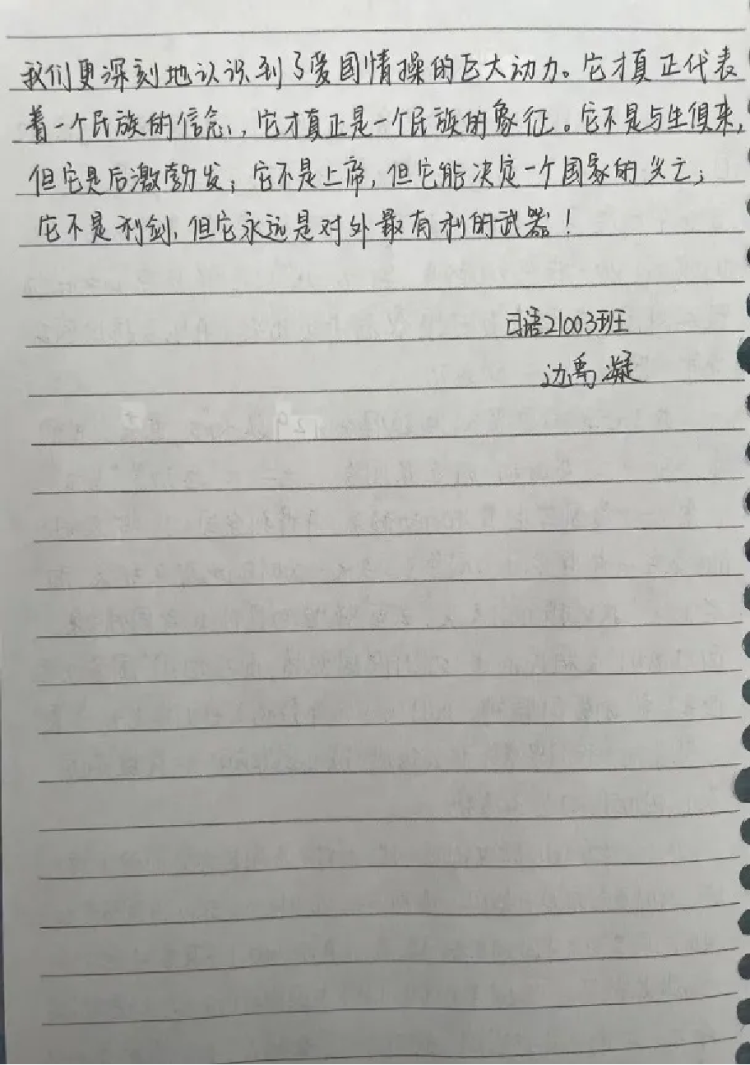 我们更深刻地认识到了爱国情操的巨大动力。它才真正代表
着一个民族的信念,它才真正是一个民族的象征。它不是与生俱来,
但它是后激勃发;它不是上帝,但它能决定一个国家的兴亡;
它不是利剑,但它永远是对外最有利的武器!
日语21003班
边禹凝